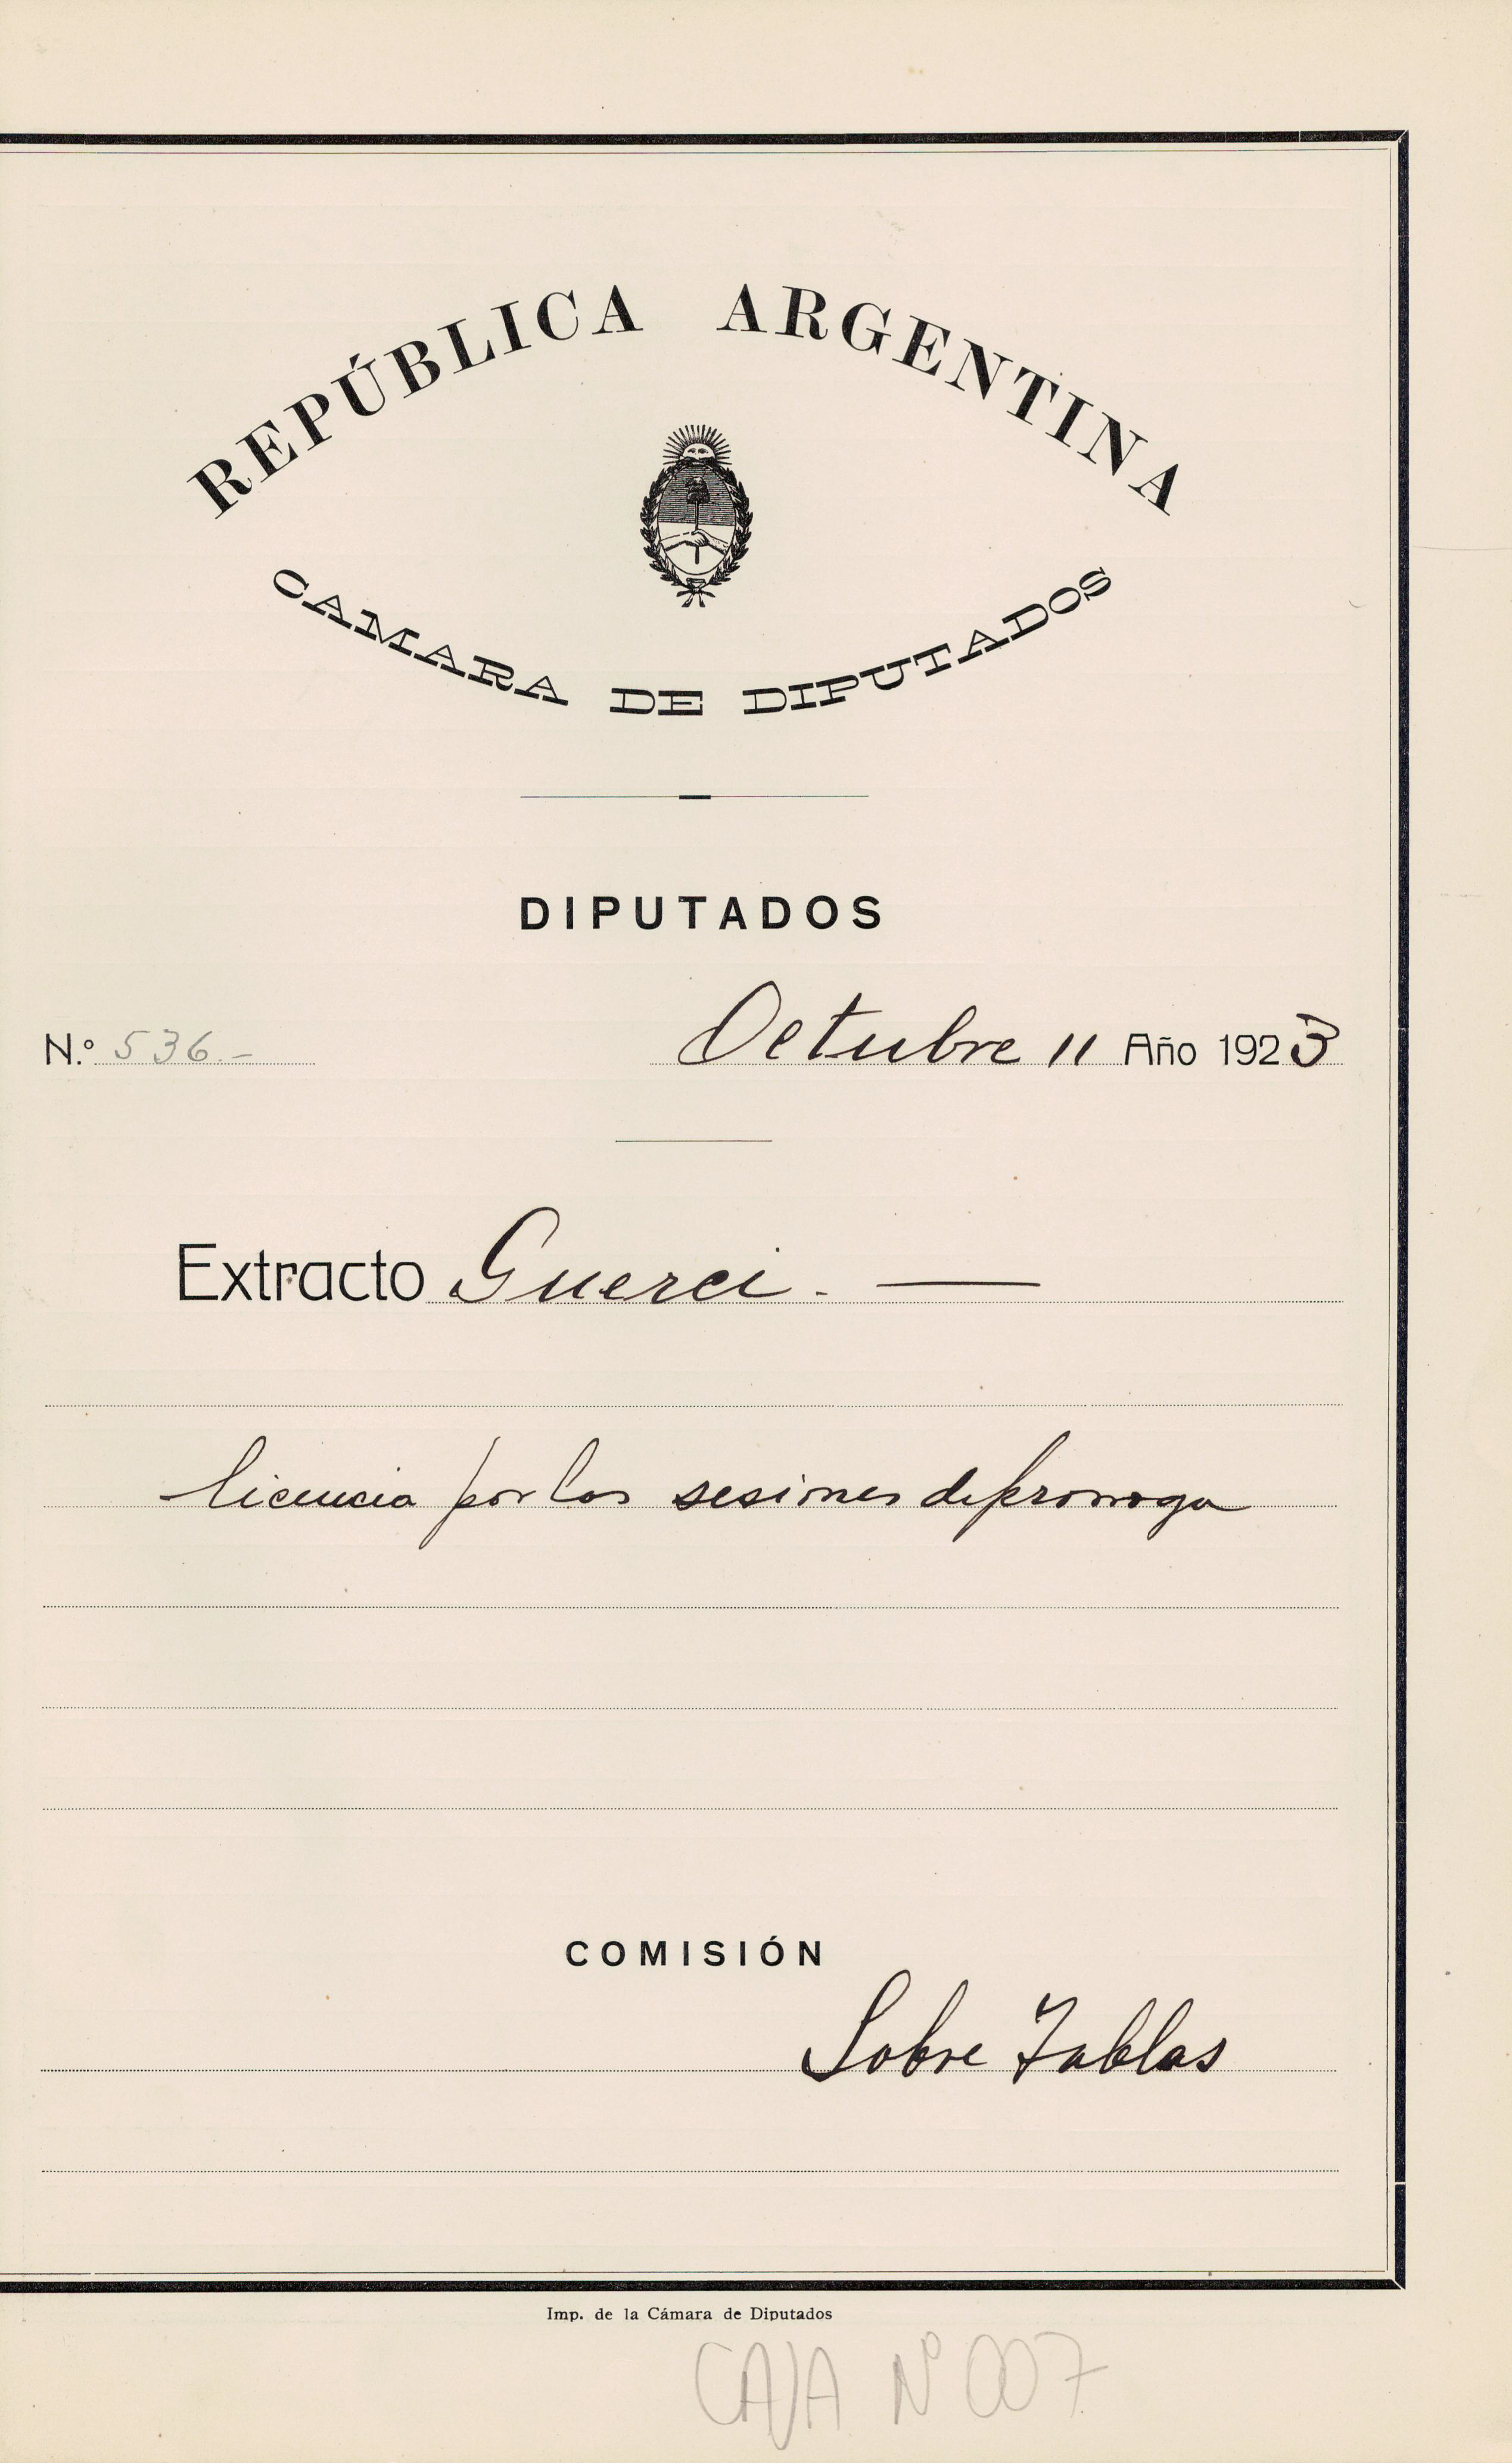 REPÚBLICA ARGENTINA
CAMARA DE DIPUTADOS
DIPUTADOS
N.º 536.- Octubre 11 Año 1923
Extracto Guerci. —
licencia por las sesiones de prorroga
COMISIÓN
Sobre Tablas
Imp. de la Cámara de Diputados
CAJA Nº 007